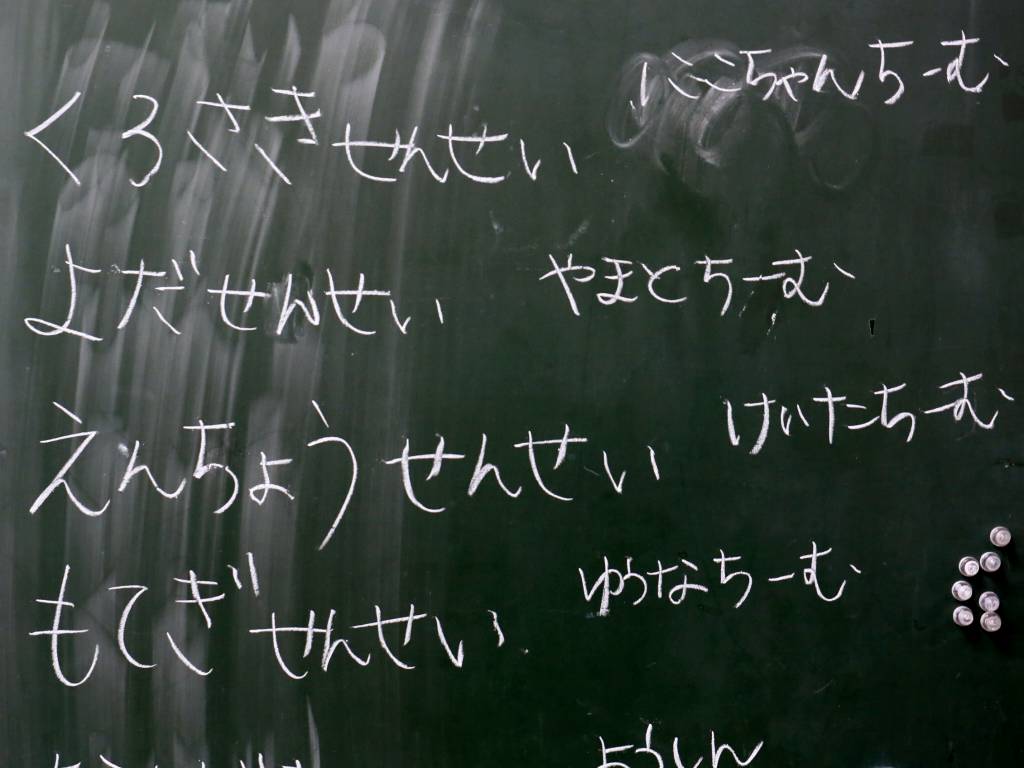 くろさきせんせい
にこちゃんちーむ
よだせんせい
やまとちーむ
えんちょうせんせい
けいたちーむ
もてぎせんせい
ゆうなちーむ